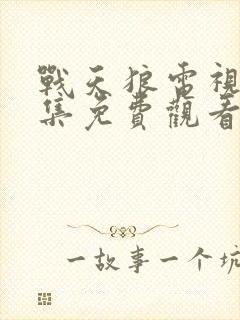 戰天狼雷視
集免費觀看
一故事一个坑